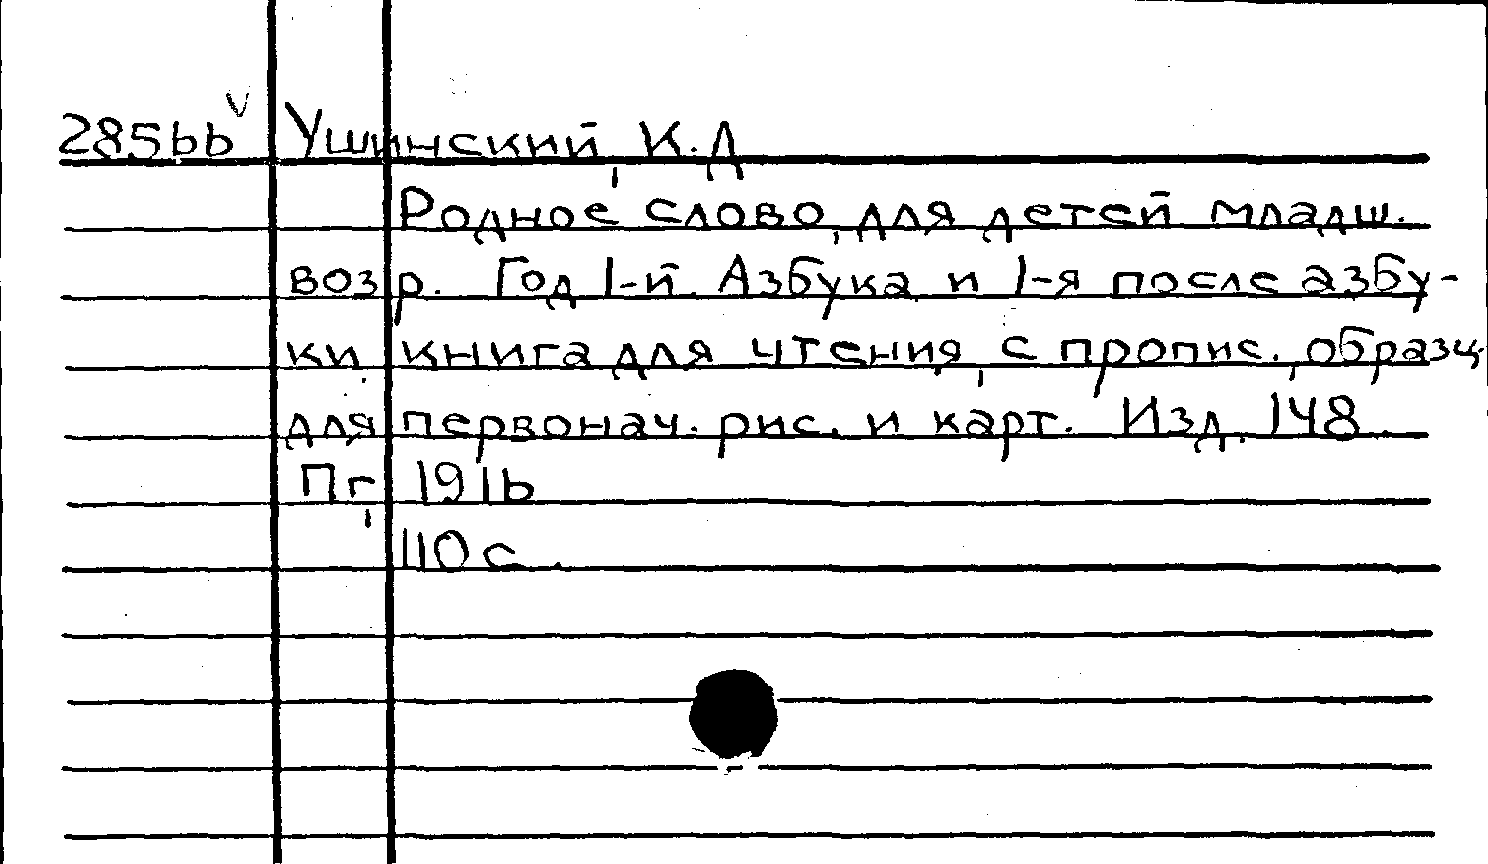 28566 Ушинский, К.Д
Родное слово, для детей младш.
возр. Год 1-й. Азбука и 1-я после азбу-
ки книга для чтения, с пропис., образц.
для первонач. рис. и карт. Изд. 148.
Пг, 1916
110 с.